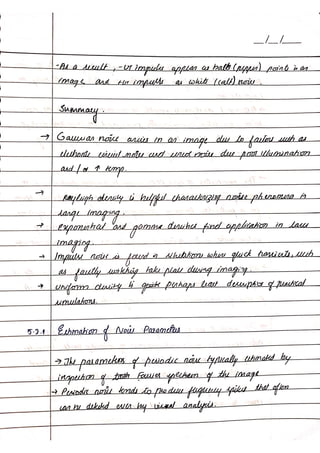 __/__/____
- As a result, -ve impulse appear as black (pepper) points in an
image and +ve impulse as white (salt) noise.
Summary.
→ Gaussian noise arises in an image due to factors such as
electronic circuit noise and sensor noise due poor illumination
and / or ↑ temp.
→ Rayleigh density is helpful characterizing noise phenomena in
range imaging.
→ exponential and gamma densities find application in laser
imaging.
→ Impulse noise is found in situations where quick transients, such
as faulty switching take place during imaging.
→ uniform density is quite perhaps least descriptive of practical
simulations.
5.2.1 Estimation of Noise Parameters
→ The parameters of periodic noise typically estimated by
inspection of the Fourier spectrum of the image
→ Periodic noise tends to produce frequency spikes that often
can be detected even by visual analysis.